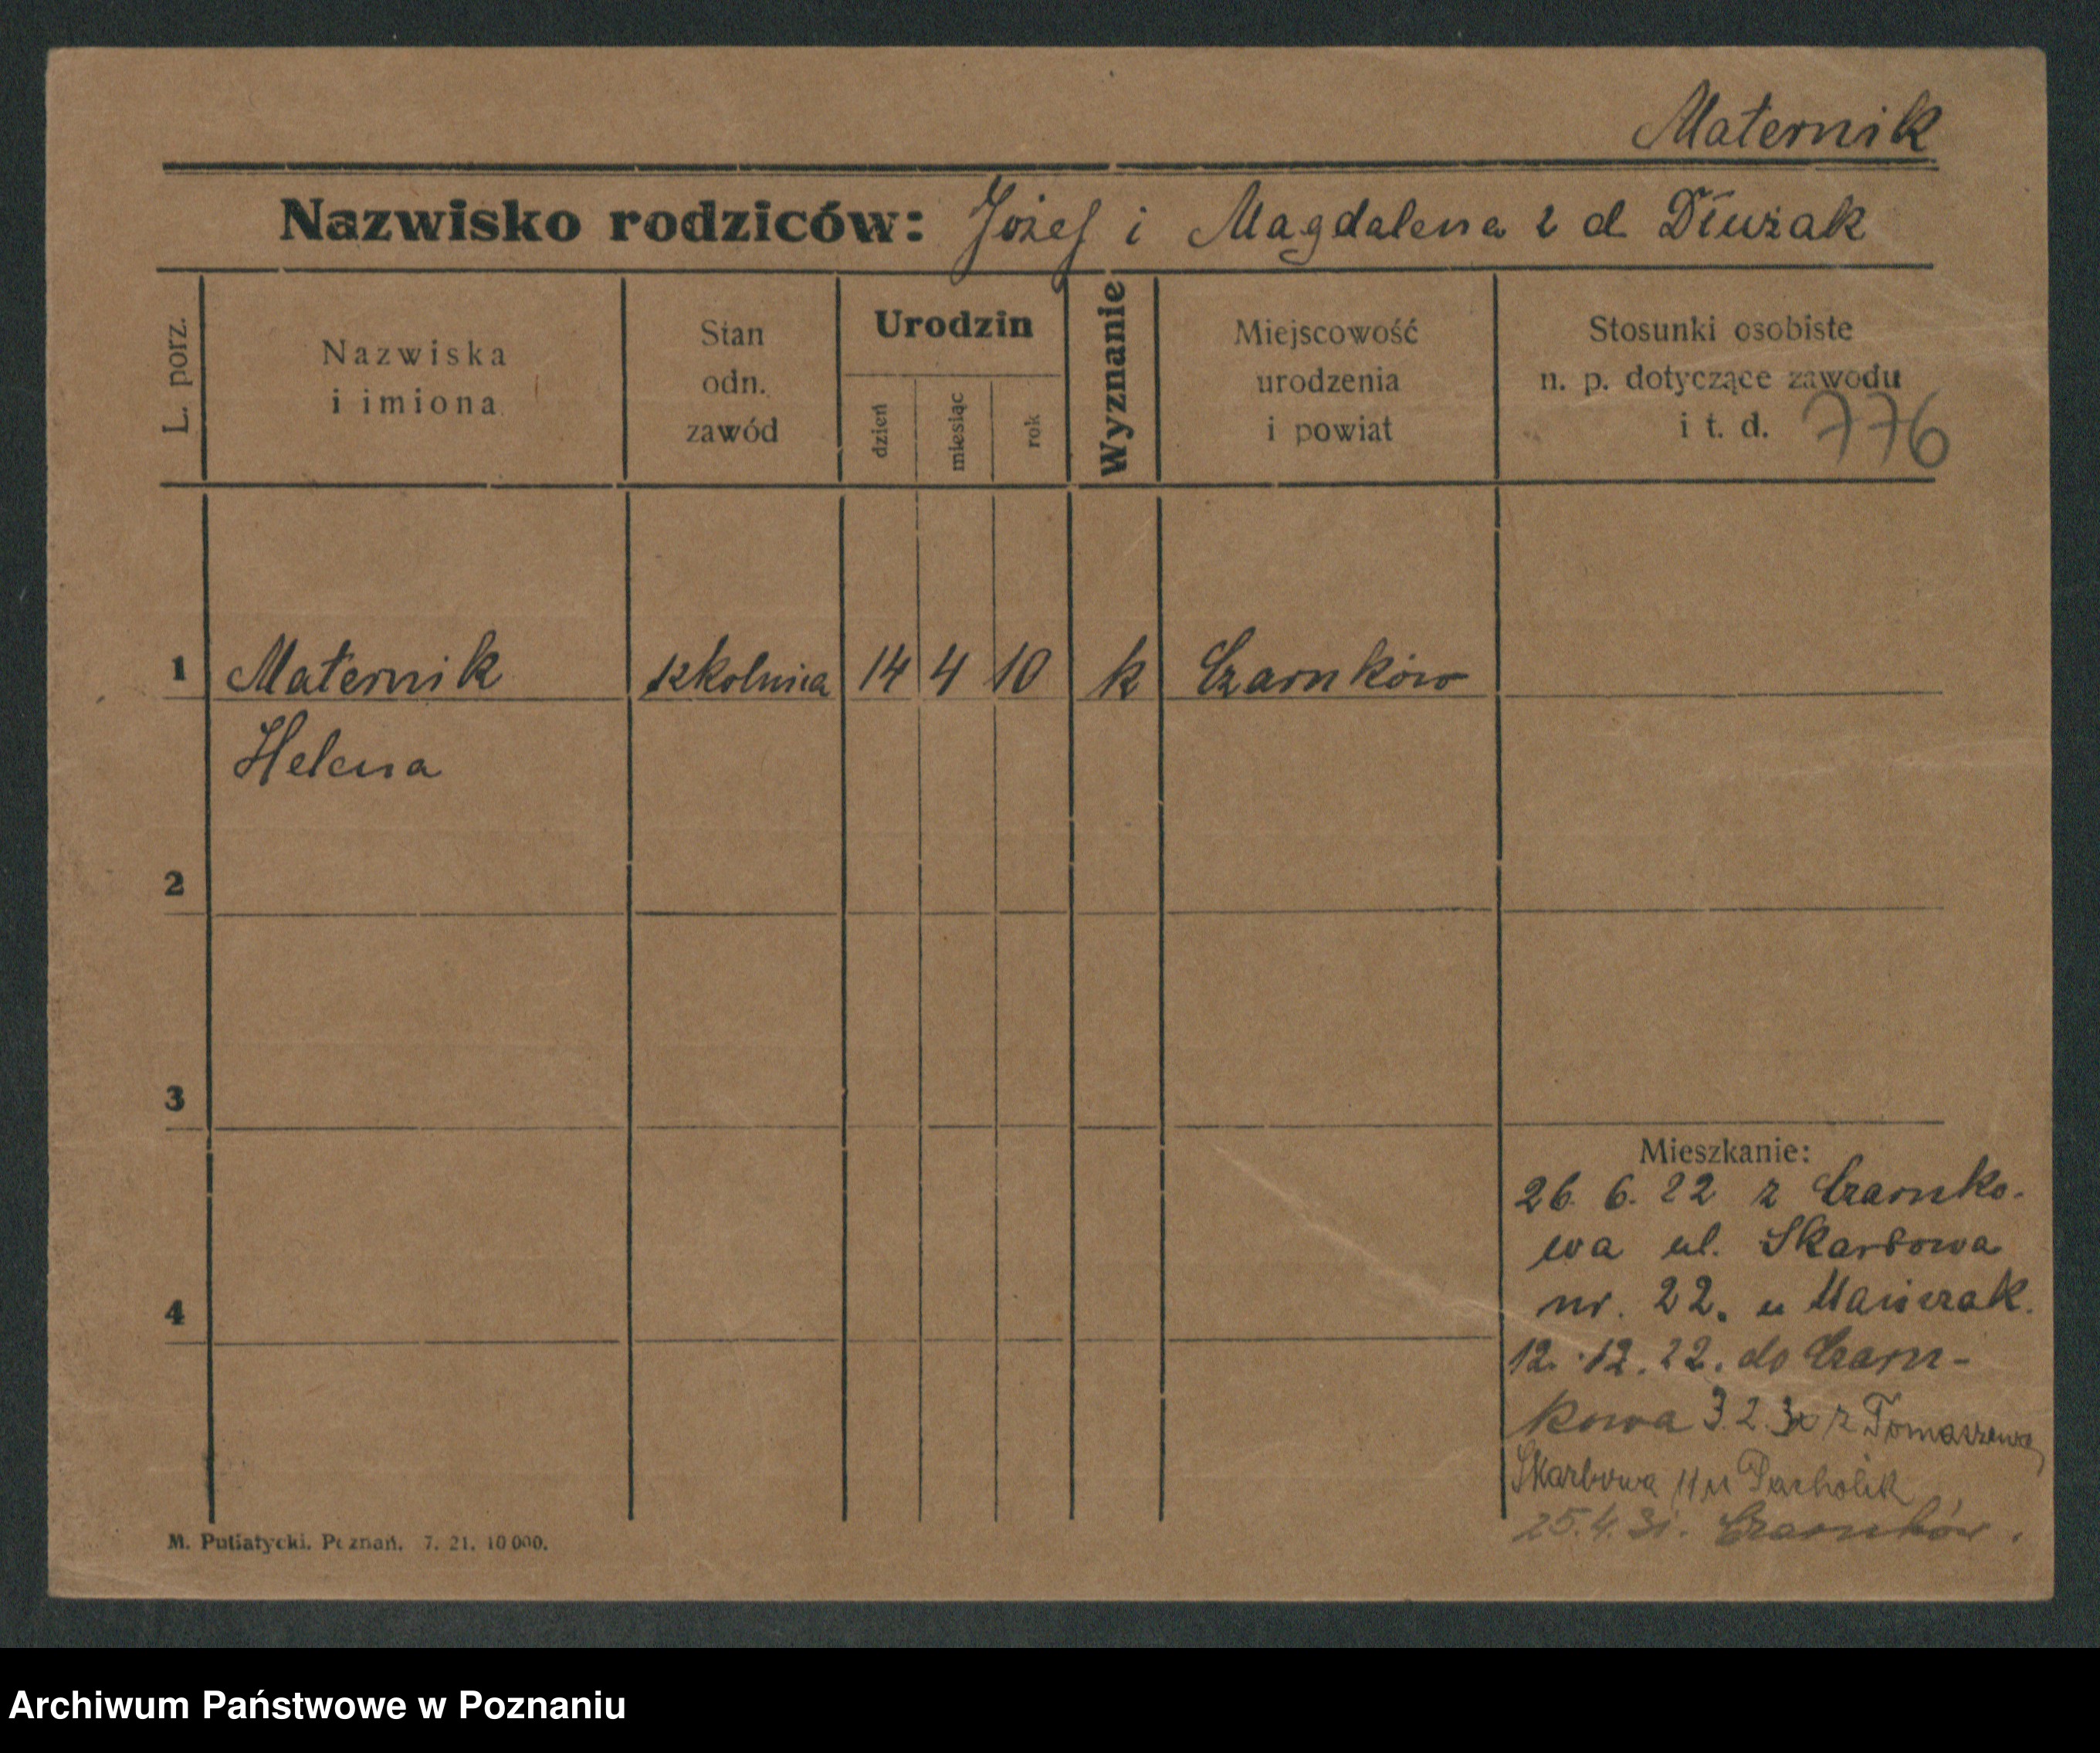 Maternik
Nazwisko rodziców: Józef i Magdalena z d Dłużak
L. porz.
Nazwiska
i imiona
Stan
odn.
zawód
Urodzin
dzień
miesiąc
rok
Wyznanie
Miejscowość
urodzenia
i powiat
Stosunki osobiste
n. p. dotyczące zawodu
i t. d. 776
1 Maternik szkolnica 14 4 10 k Czarnków
Helena
2
3
Mieszkanie:
26. 6. 22 z Czarnko-
wa ul. Skarbowa
4 nr. 22. u
12. 12. 22. do Czarn-
kowa 3.2. z Tomaszewa
Skarbowa 11 u Pacholik
25.4.31. Czarnków.
M. Putiatycki. Poznań. 7. 21. 10 000.
Archiwum Państwowe w Poznaniu